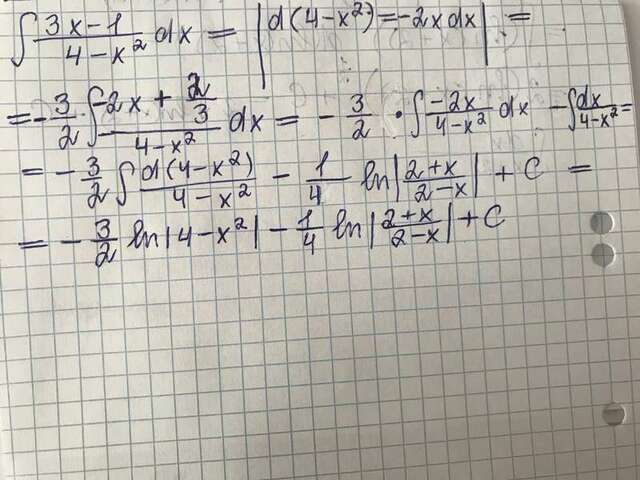 ∫ (3x-1)/(4-x²) dx = | d(4-x²) = -2x dx | =
= -3/2 · ∫ (-2x + 2/3)/(4-x²) dx = -3/2 · ∫ (-2x)/(4-x²) dx - ∫ dx/(4-x²) =
= -3/2 ∫ d(4-x²)/(4-x²) - 1/4 ln|(2+x)/(2-x)| + C =
= -3/2 ln|4-x²| - 1/4 ln|(2+x)/(2-x)| + C